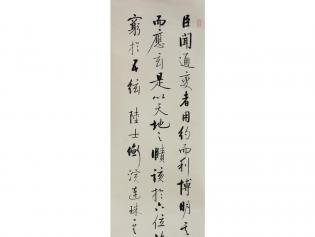 臣聞通變者用約而利博明其
而應玄是以天地之賾該於六位
窮於五絃 陸士衡演連珠